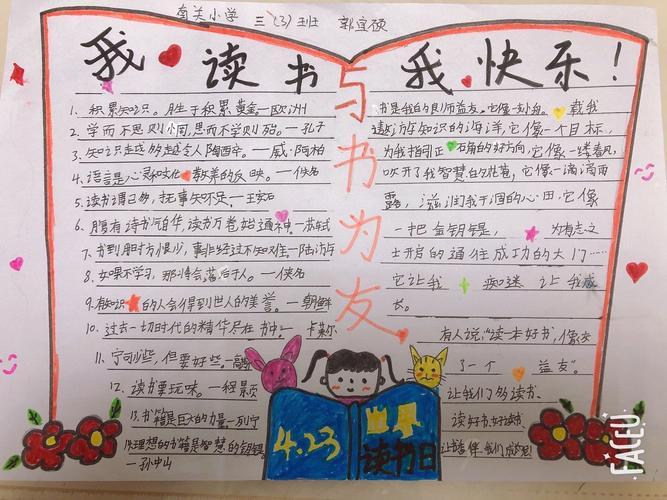 南关小学 三(3)班 郭宜硕
我读书 我快乐!
与书为友
1. 积累知识。胜于积累黄金。—欧洲
2. 学而不思则惘,思而不学则殆。—孔子
3. 知识越多越令人陶醉。—威·阿柏
4. 语言是心灵和文化教养的反映。—佚名
5. 读书谓已多,抚事知不足。—王安石
6. 腹有诗书气自华,读书万卷始通神。—苏轼
7. 书到用时方恨少,事非经过不知难。—陆游
8. 如果不学习,那将会落后于人。—佚名
9. 有知识的人会得到世人的美誉。—朝鲜
10. 过去一切时代的精华尽在书中。—卡莱尔
11. 宁可少些,但要好些。—高尔
12. 读书要玩味。—程颢
13. 书籍是巨大的力量—列宁
14. 理想的书籍是智慧的钥匙。
—孙中山
书是我的良师益友。它像一叶小舟。载我
遨游知识的海洋,它像一个目标,
为我指引正确的好方向,它像一缕春风,
吹开了我智慧的花苞,它像一滴滴雨
露,滋润我干涸的心田,它像
一把金钥匙,为有志之
士开启的通往成功的大门……
它让我痴迷 让我成
长。
有人说:"读一本好书",像交
了一个益友"。
让我们多读书、
读好书、好读书
让书伴我们成长!
4.23
世界
读书日
FACEU